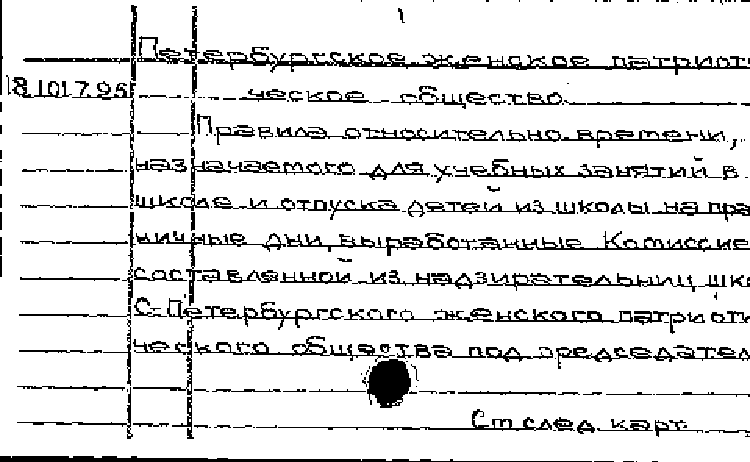 1
Петербургское женское патриоти
18.1017.95 ческое общество.
Правила относительно времени,
назначаемого для учебных занятий в
школе и отпуска детей из школы на пра
ничные дни, выработанные Комиссие
составленной из надзирательниц шко
С-Петербургского женского патриоти
ческого общества под председател
См. след. карт.